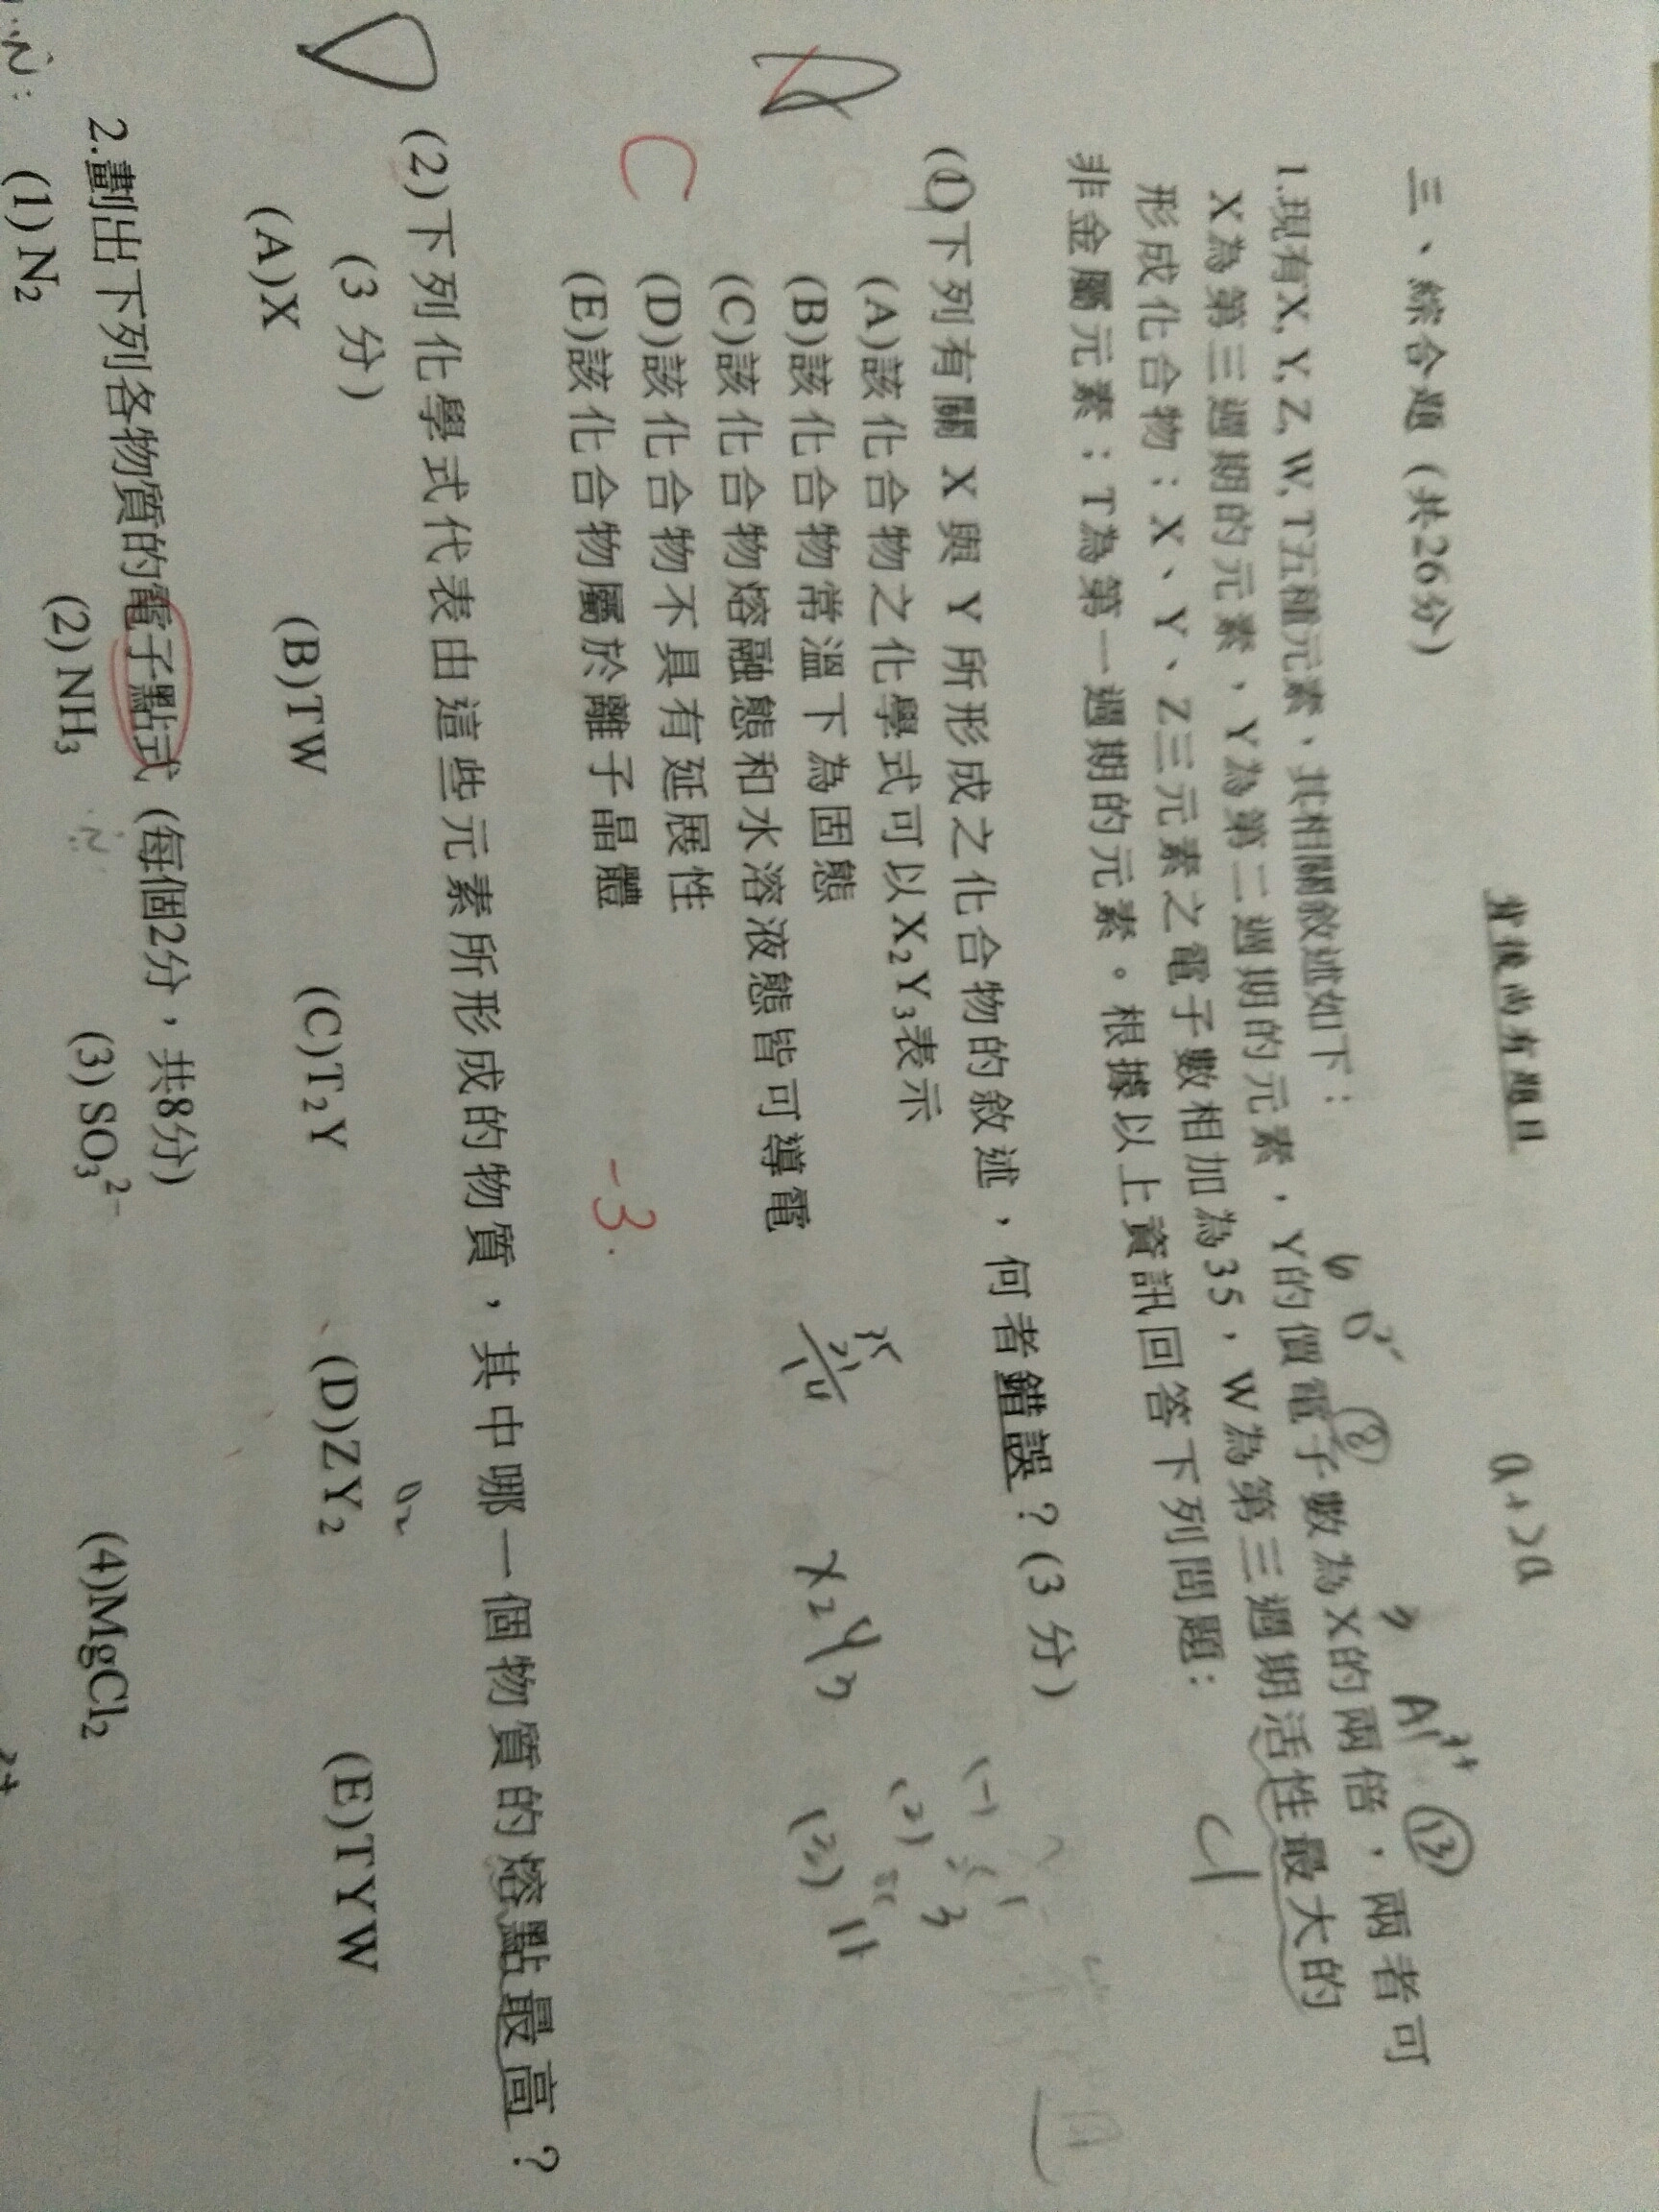 背後尚有題目
三、綜合題（共26分）
1.現有X, Y, Z, W, T五種元素、其相關敘述如下：
X為第三週期的元素、Y為第二週期的元素，Y的價電子數為X的兩倍，兩者可
形成化合物；X、Y、Z三元素之電子數相加為35，W為第三週期活性最大的
非金屬元素；T為第一週期的元素。根據以上資訊回答下列問題：
a+>a
6 O²⁻ ⑧
3 Al³⁺ ⑬
Cl
(1)下列有關 X 與 Y 所形成之化合物的敘述，何者錯誤？(3 分)
(A)該化合物之化學式可以X₂Y₃表示
(B)該化合物常溫下為固態
(C)該化合物熔融態和水溶液態皆可導電
(D)該化合物不具有延展性
(E)該化合物屬於離子晶體
A
C
-3.
35
21
14
X₂Y₃
(1)
(2) 3
(3) 11
D
(2)下列化學式代表由這些元素所形成的物質，其中哪一個物質的熔點最高？
(3 分)
(A)X (B)TW (C)T₂Y (D)ZY₂ (E)TYW
O₂
2.劃出下列各物質的電子點式 (每個2分，共8分)
(1) N₂ (2) NH₃ (3) SO₃²⁻ (4)MgCl₂
2+